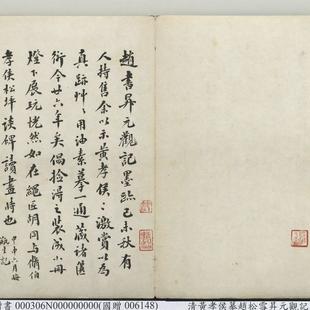 趙書昇元觀記墨跡己未秋有
人持售余以示黃孝侯〻激賞以為
真跡艸〻用油素摹一通藏諸篋
衍今廿六年矣偶撿得之裝成小冊
燈下展玩恍然如在繩匠胡同與脩伯
孝侯松坪談碑讀畫時也
甲申六月
生記
書 000306N000000000(國贈 006148)
清黃孝侯摹趙松雪昇元觀記